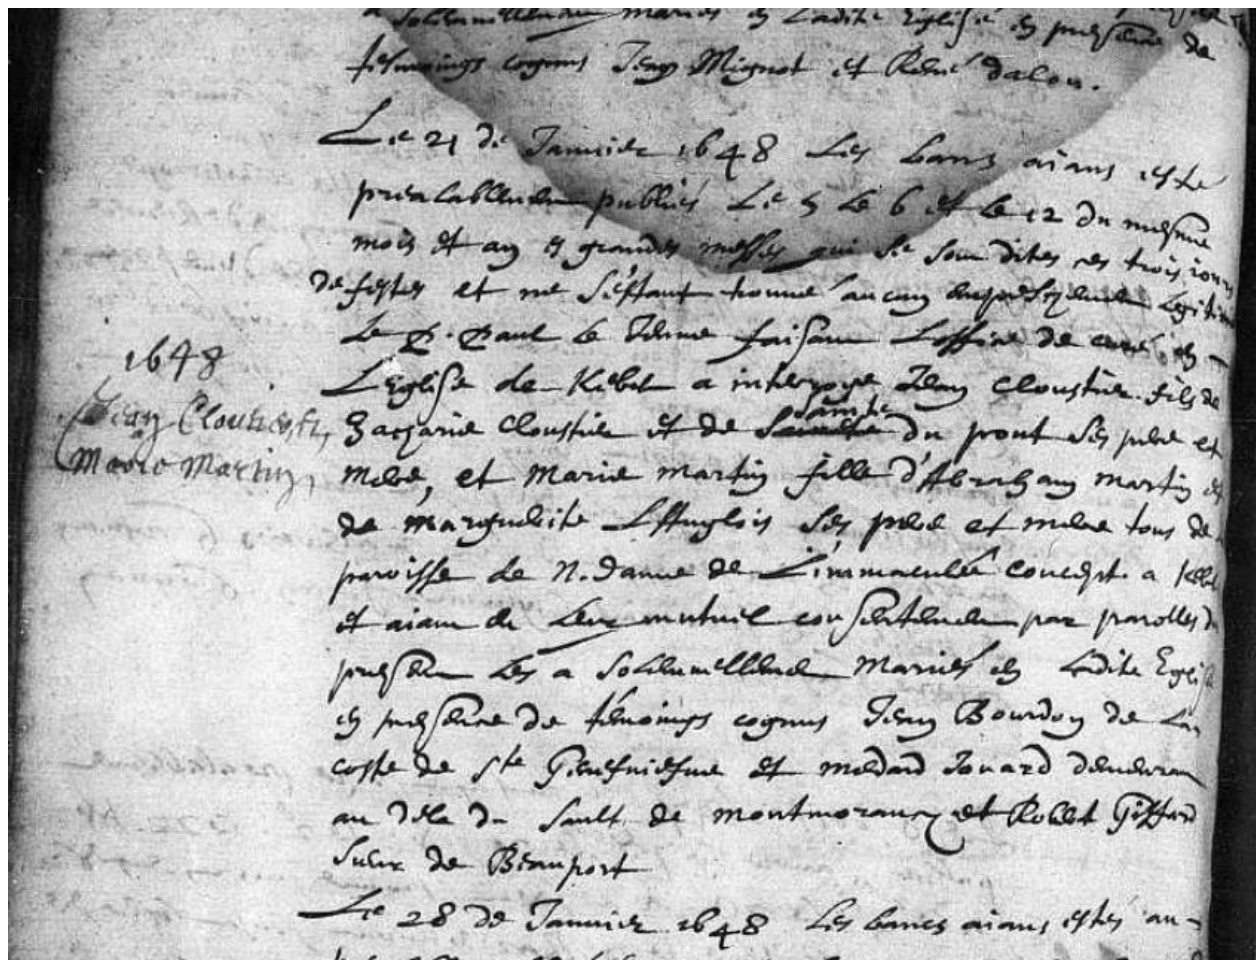 a solemnellement mariés en Ladite Eglise en presence de
tesmoings cognus Jean Mignot et René dalou.
Le 21 de Januier 1648 Les bans aians este
prealablement publiés Le 5 le 6 et le 12 du mesme
mois et an es grandes messes qui se sont dites ces trois iours
de festes et ne s'estant trouué aucun empeschement legitime
Le P. Paul le Jeune faisant L'office de curé en
L'Eglise de Kebek a interrogé Jean Cloustier fils de
Zacharie Cloustier et de sainte du pont ses pere et
mere, et Marie martin fille d'Abraham martin et
de marguerite L'anglois ses pere et mere tous de
paroisse de N. dame de L'immaculée concept. a Kebek
et aiant eu Leur mutuel consentement par parolles de
present Les a solemnellement Mariés en Ladite Eglise
en presence de temoings cognus Jean Bourdon de La
coste de Ste Geneuiefue et medard demeurant
au dela du sault de montmorancy et Robert Giffard
sieur de Beauport
Le 28 de Januier 1648 Les bancs aians estés au-
1648
Jean Cloutier, &
Marie Martin,